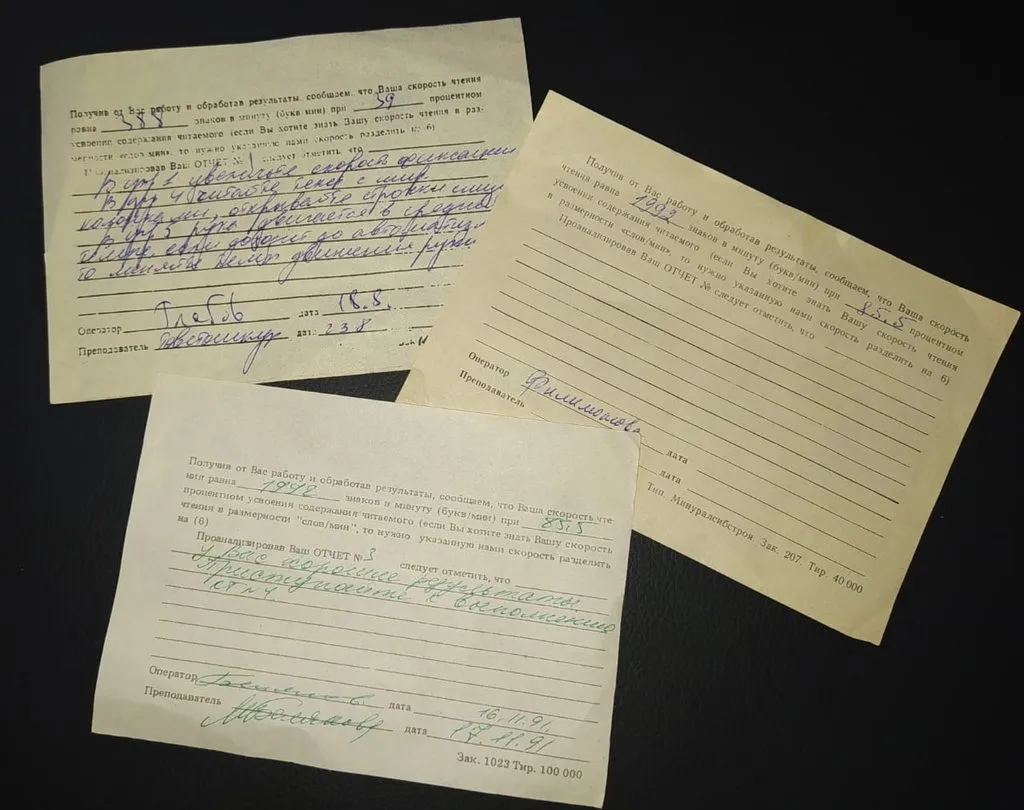 Получив от Вас работу и обработав результаты, сообщаем, что Ваша скорость чтения
равна 388 знаков в минуту (букв/мин) при 39 процентном
усвоении содержания читаемого (если Вы хотите знать Вашу скорость чтения в раз-
мерности «слов/мин», то нужно указанную нами скорость разделить на 6)
Проанализировав Ваш ОТЧЕТ № 1 следует отметить, что
В упр 1 увеличьте скорость фиксации
В упр 4 читайте текст с
открывайте строки
В упр 5 рука двигается в среднем
темпе, если доходит до
то меняйте темп движения руки
Оператор Глебов дата 18.8.
Преподаватель дата 23.8
Зак
Получив от Вас работу и обработав результаты, сообщаем, что Ваша скорость
чтения равна 1993 знаков в минуту (букв/мин) при 85,5 процентном
усвоении содержания читаемого (если Вы хотите знать Вашу скорость чтения
в размерности «слов/мин», то нужно указанную нами скорость разделить на 6)
Проанализировав Ваш ОТЧЕТ № следует отметить, что
Оператор Филимонова дата
Преподаватель дата
Тип. Минуралсибстроя. Зак. 207. Тир. 40 000
Получив от Вас работу и обработав результаты, сообщаем, что Ваша скорость чте
ния равна 1942 знаков в минуту (букв/мин) при 85,5
процентном усвоения содержания читаемого (если Вы хотите знать Вашу скорость
чтения в размерности "слов/мин", то нужно указанную нами скорость разделить
на (6)
Проанализировав Ваш ОТЧЕТ № 3 следует отметить, что
у Вас хорошие результаты.
Приступайте к выполнению
КТ №4
Оператор дата 16.11.91.
Преподаватель дата 17.11.91
Зак. 1023 Тир. 100 000